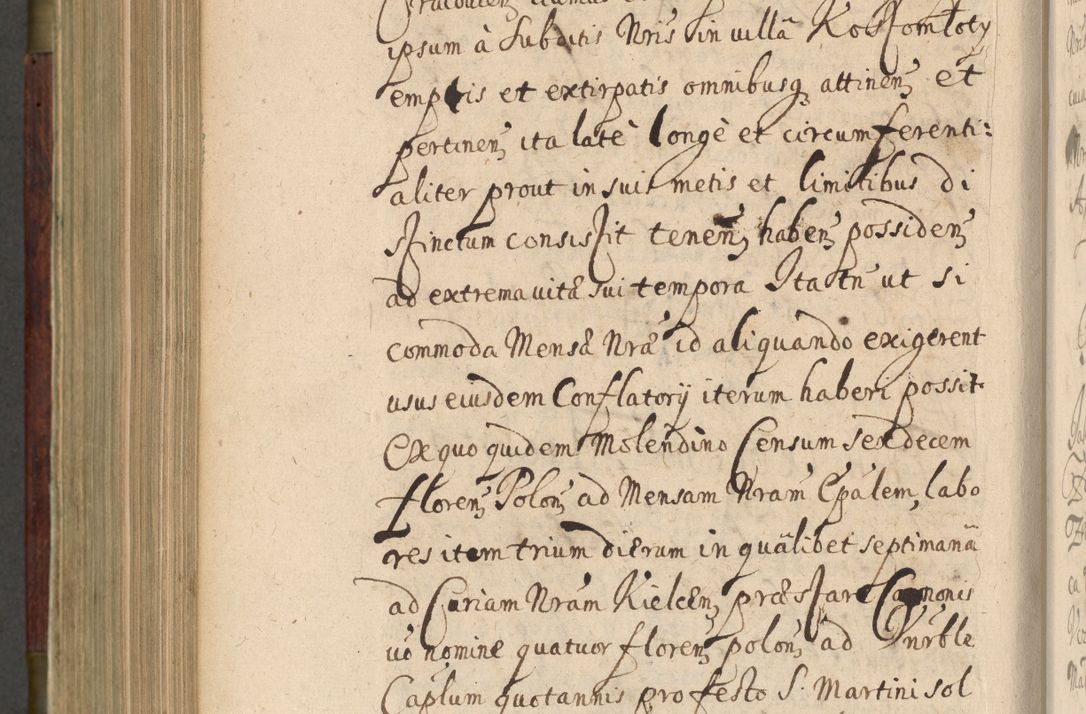 ipsum à Subditis Nris in villâ Kostomłoty
emptis et extirpatis omnibusq attinen et
pertinen ita latè longè et circumferenti:
aliter prout in suis metis et limitibus di
stinctum consistit tenen haben possiden
ad extrema vitæ sui tempora Ita tn ut si
commoda Mensæ Nræ id aliquando exigerent
usus eiusdem Conflatorij iterum haberi possit
Ex quo quidem Molendino Censum sexdecem
floren Polon ad Mensam Nram Epalem, labo
res item trium dierum in quâlibet septimanâ
ad Curiam Nram Kielcen præstare Canonis
vo nomine quatuor floren polon ad Vnrble
Caplum quotannis pro festo S. Martini sol